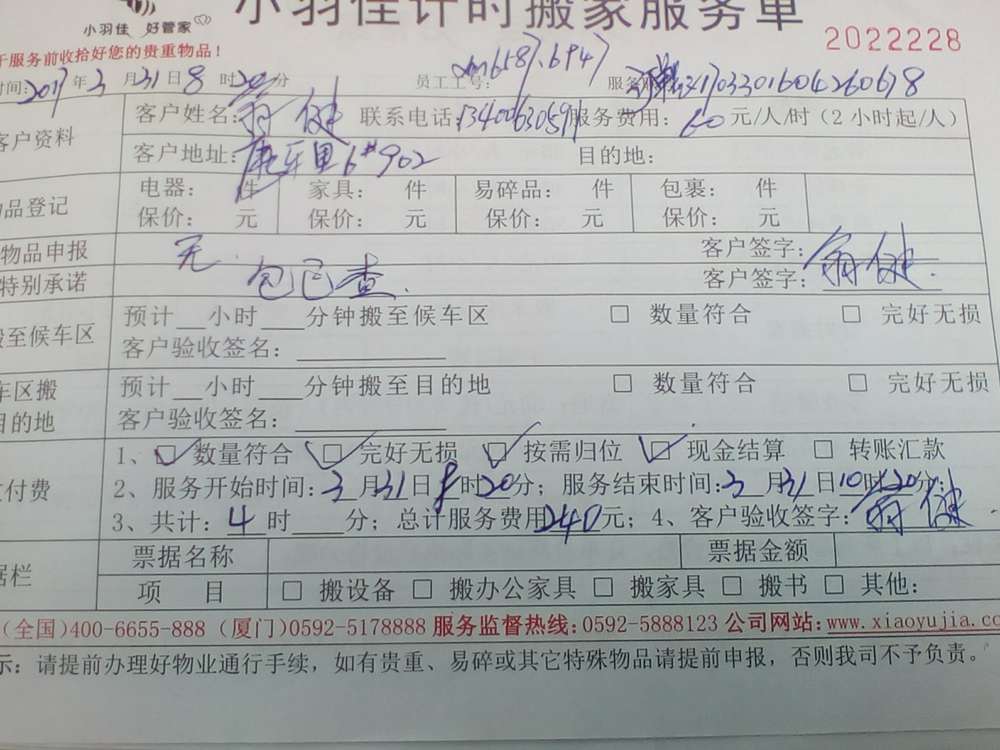 小羽佳计时搬家服务单
小羽佳 好管家
2022228
于服务前收拾好您的贵重物品！
时间：2017年3月31日8时20分 员工工号： 服务
客户资料 客户姓名：翁健 联系电话： 服务费用：60元/人/时（2小时起/人）
客户地址：康乐里6#902 目的地：
品登记 电器： 件 家具： 件 易碎品： 件 包裹： 件
保价： 元 保价： 元 保价： 元 保价： 元
物品申报 无 客户签字：翁健
特别承诺 包已查. 客户签字：
至候车区 预计__小时___分钟搬至候车区 □ 数量符合 □ 完好无损
客户验收签名：
车区搬 预计__小时___分钟搬至目的地 □ 数量符合 □ 完好无损
目的地 客户验收签名：
付费 1、☑数量符合 ☑完好无损 ☑按需归位 ☑现金结算 □ 转账汇款
2、服务开始时间：3月31日8时20分；服务结束时间：3月31日10时20分；
3、共计：4时 分；总计服务费用240元；4、客户验收签字：翁健.
据栏 票据名称 票据金额
项 目 □ 搬设备 □ 搬办公家具 □ 搬家具 □ 搬书 □ 其他：
(全国)400-6655-888 (厦门)0592-5178888 服务监督热线：0592-5888123 公司网站：www.xiaoyujia.co
示：请提前办理好物业通行手续，如有贵重、易碎或其它特殊物品请提前申报，否则我司不予负责。